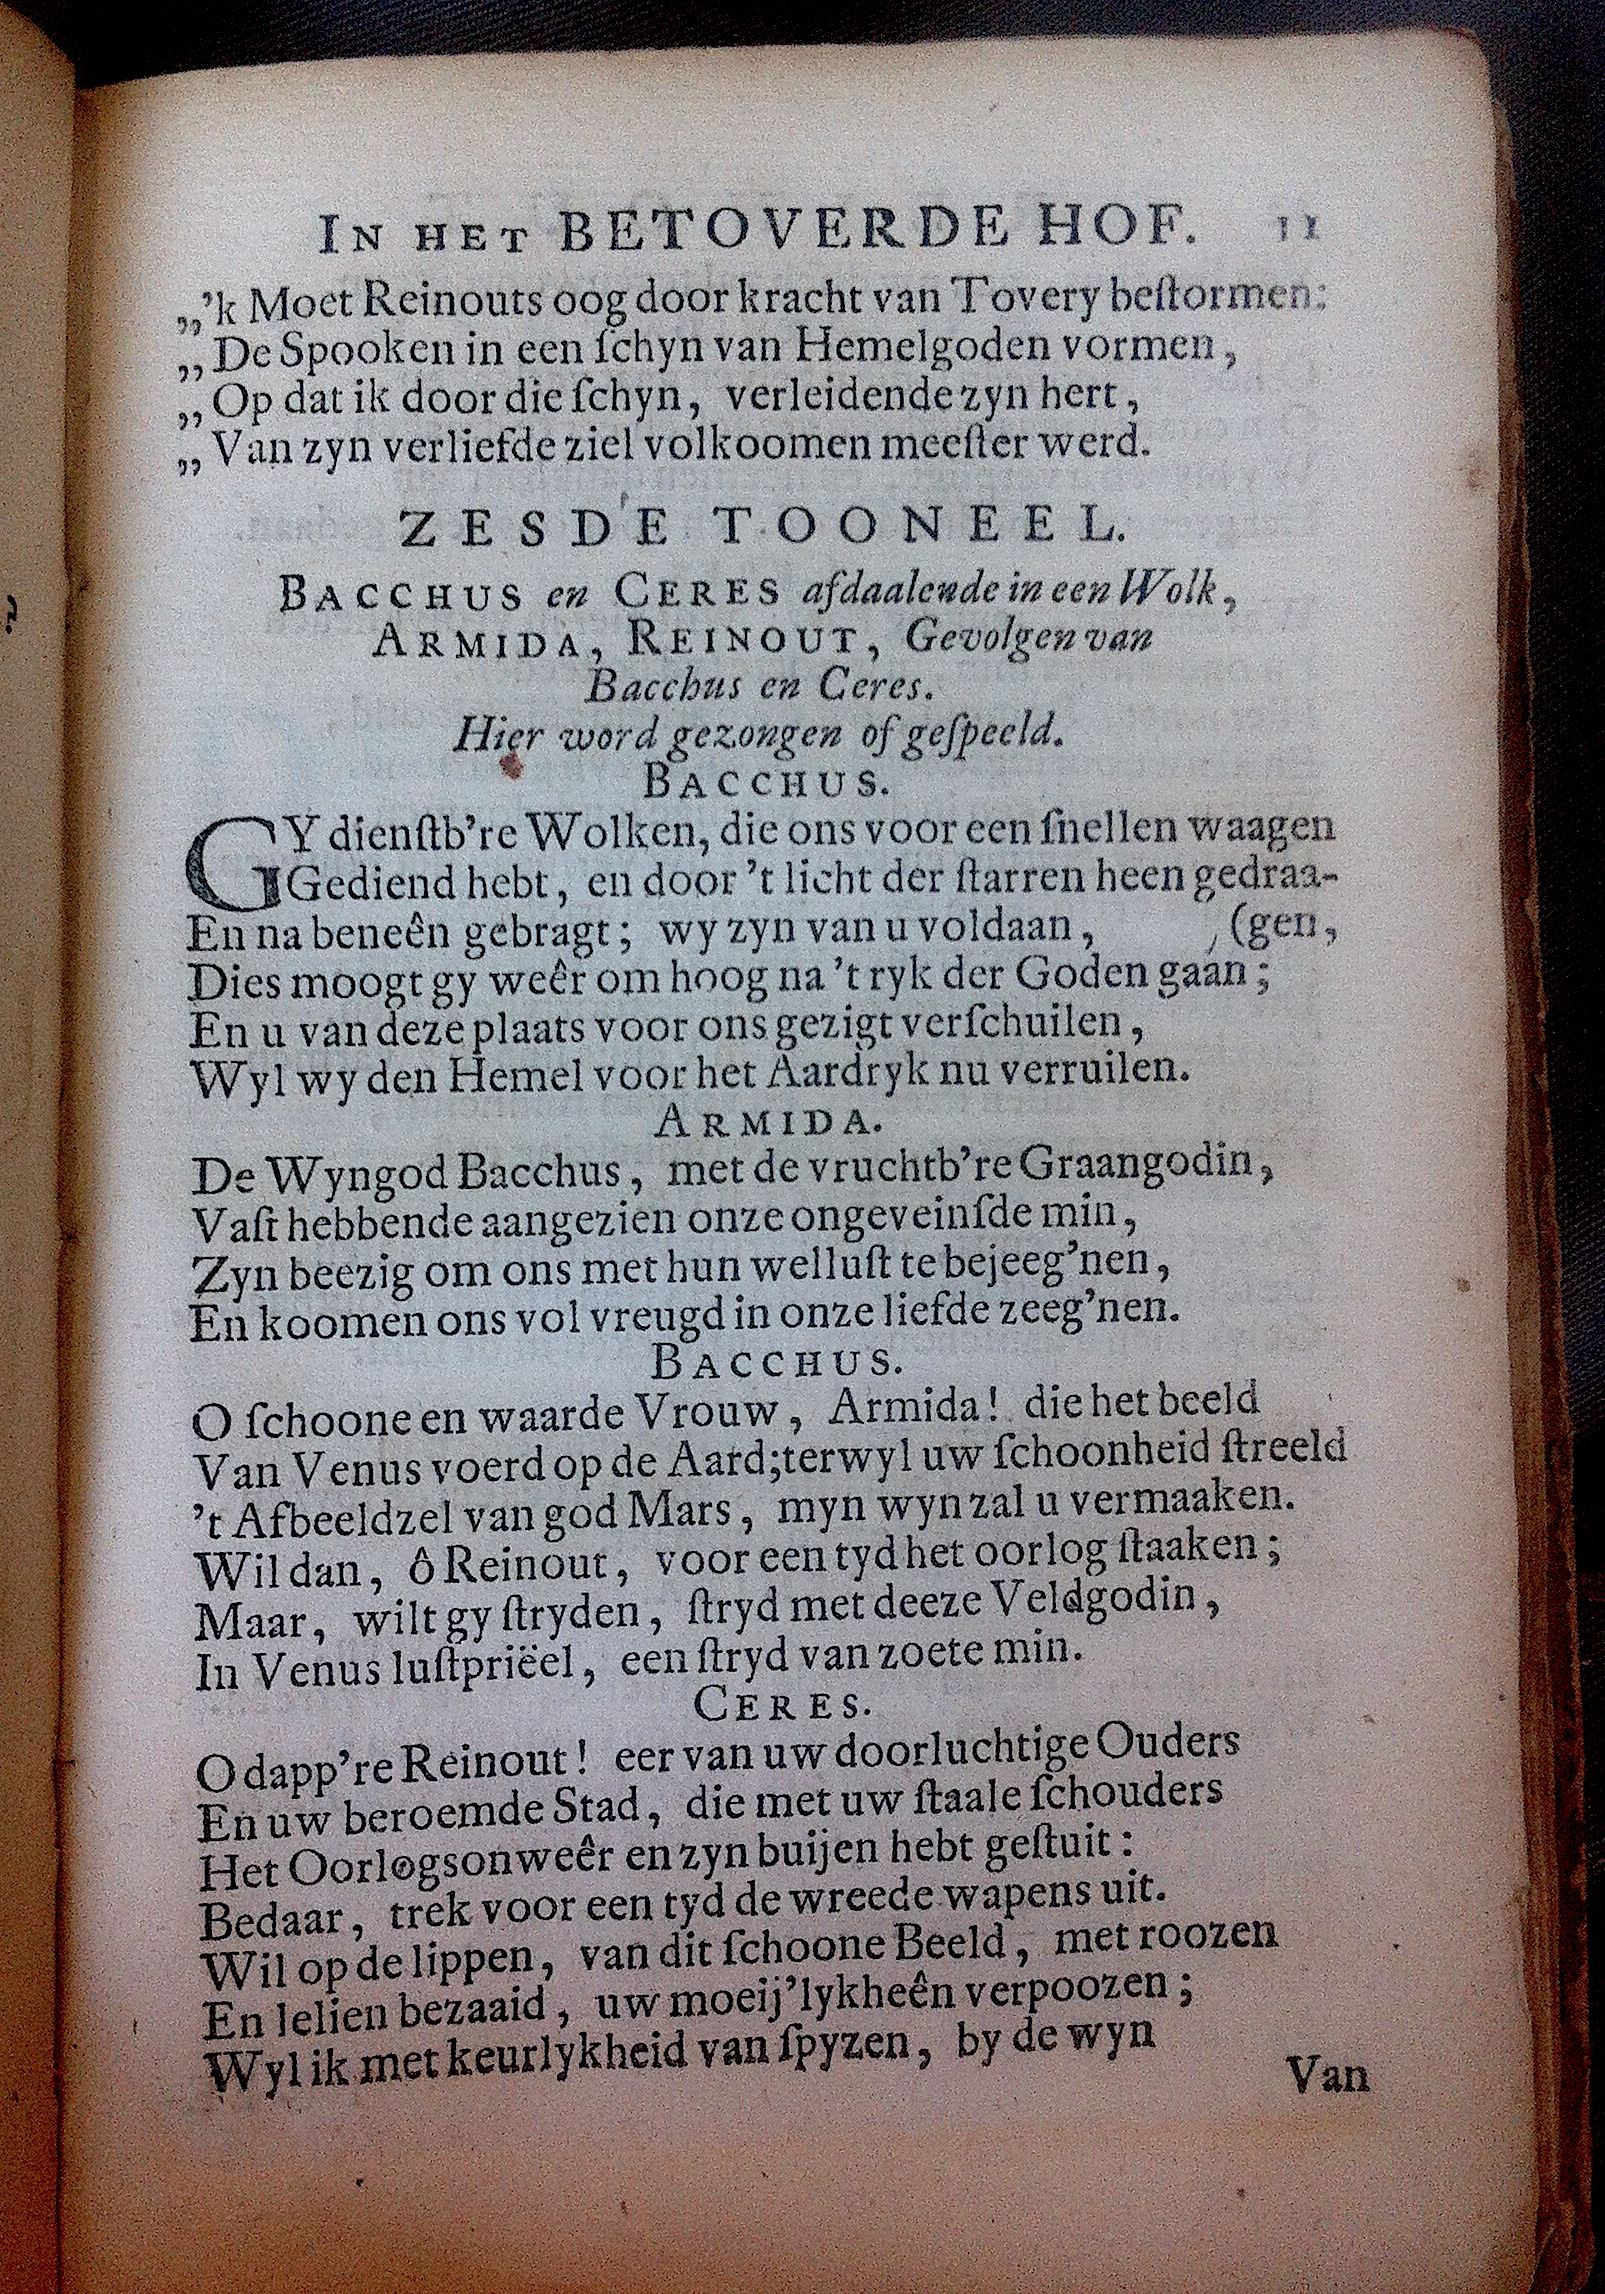 IN HET BETOVERDE HOF. 11
„’k Moet Reinouts oog door kracht van Tovery beſtormen:
„De Spooken in een ſchyn van Hemelgoden vormen,
„Op dat ik door die ſchyn, verleidende zyn hert,
„Van zyn verliefde ziel volkoomen meeſter werd.
ZESDE TOONEEL.
BACCHUS en CERES afdaalende in een Wolk,
ARMIDA, REINOUT, Gevolgen van
Bacchus en Ceres.
Hier word gezongen of geſpeeld.
BACCHUS.
GY dienſtb’re Wolken, die ons voor een ſnellen waagen
Gediend hebt, en door ’t licht der ſtarren heen gedraa-
En na beneên gebragt; wy zyn van u voldaan, (gen,
Dies moogt gy weêr om hoog na ’t ryk der Goden gaan;
En u van deze plaats voor ons gezigt verſchuilen,
Wyl wy den Hemel voor het Aardryk nu verruilen.
ARMIDA.
De Wyngod Bacchus, met de vruchtb’re Graangodin,
Vaſt hebbende aangezien onze ongeveinſde min,
Zyn beezig om ons met hun welluſt te bejeeg’nen,
En koomen ons vol vreugd in onze liefde zeeg’nen.
BACCHUS.
O ſchoone en waarde Vrouw, Armida! die het beeld
Van Venus voerd op de Aard; terwyl uw ſchoonheid ſtreeld
’t Afbeeldzel van god Mars, myn wyn zal u vermaaken.
Wil dan, ô Reinout, voor een tyd het oorlog ſtaaken;
Maar, wilt gy ſtryden, ſtryd met deeze Veldgodin,
In Venus luſtpriëel, een ſtryd van zoete min.
CERES.
O dapp’re Reinout! eer van uw doorluchtige Ouders
En uw beroemde Stad, die met uw ſtaale ſchouders
Het Oorlogsonweêr en zyn buijen hebt geſtuit:
Bedaar, trek voor een tyd de wreede wapens uit.
Wil op de lippen, van dit ſchoone Beeld, met roozen
En lelien bezaaid, uw moeij’lykheên verpoozen;
Wyl ik met keurlykheid van ſpyzen, by de wyn
Van